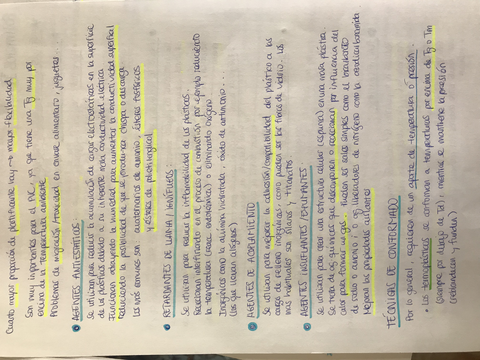 Cuanta mayor proporción de plastificante hay → mayor flexibilidad
Son muy importantes para el PVC, ya que tiene una Tg muy por
encima de la temperatura ambiente
Problemas de migración / toxicidad en envase alimentario, juguetes...
• AGENTES ANTIESTÁTICOS
Se utilizan para reducir la acumulación de cargas electrostáticas en la superficie
de los plásticos debido a su inherente mala conductividad eléctrica
Funcionan atrayendo humedad para aumentar la conductividad superficial
Reduciendo la probabilidad de que se produzca chispa o descarga.
Los más comunes son cuaternarios de amonio, ésteres fosfóricos
y ésteres de polietilenglicol.
• RETARDANTES DE LLAMA / IGNÍFUGOS
Se utilizan para reducir la inflamabilidad de los plásticos.
Reaccionan interfiriendo en el proceso de combustión por ejemplo reduciendo
la temperatura (reacc endotérmica) o eliminando oxígeno
Inorgánicos como la alúmina hidratada, óxido de antimonio...
(los que llevan alógenos)
• AGENTES DE ACOPLAMIENTO
Se utilizan para mejorar la adhesión/compatibilidad del plástico a las
cargas de relleno inorgánicas como pueden ser las fibras de vidrio. Los
más habituales son silanos y titanatos
• AGENTES INSUFLANTES / ESPUMANTES
Se utilizan para crear una estructura celular (espuma) en una masa plástica
Se trata de ag. químicos que descomponen o reaccionan por influencia del
calor para formar un gas. Pueden ser sales simples como el bicarbonato
de sodio o amonio, o ag. liberadores de nitrógeno como la azodicarbonamida
Mejora las propiedades aislantes
TÉCNICAS DE CONFORMADO
Por lo general, requieren de un aporte de temperatura o presión
• Los termoplásticos se conforman a temperaturas por encima de Tg o Tm
(siempre por debajo de Td), mientras se mantiene la presión
(reblandecen y fluidifican)